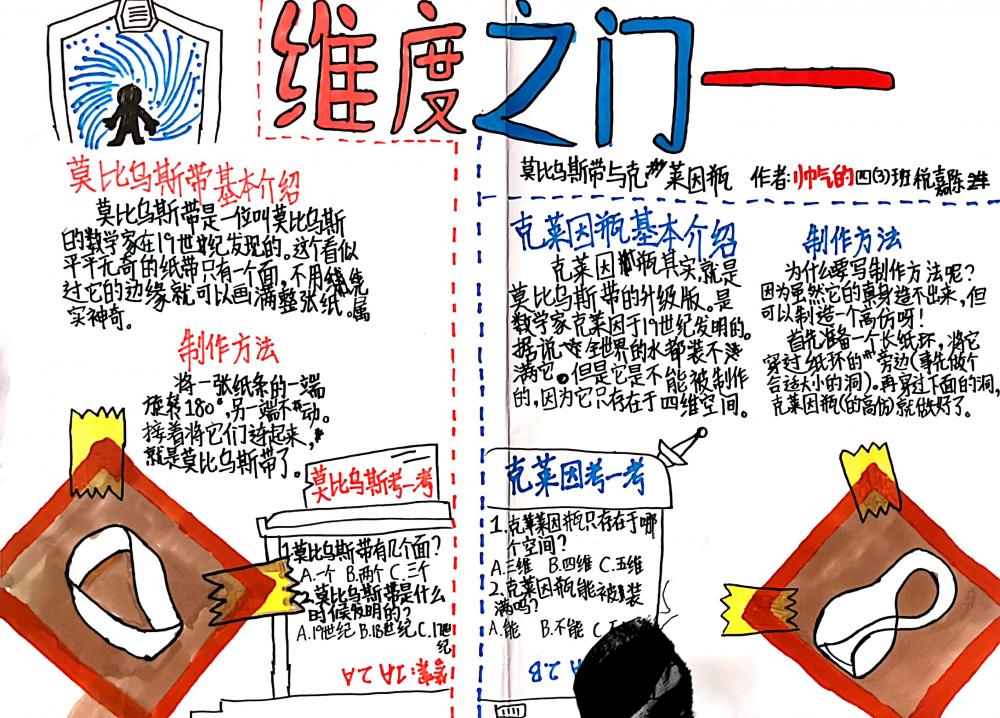 维度之门
莫比乌斯带与克莱因瓶 作者:帅气的四(3)班
莫比乌斯带基本介绍
莫比乌斯带是一位叫莫比乌斯
的数学家在19世纪发现的。这个看似
平平无奇的纸带只有一个面,不用绕
过它的边缘就可以画满整张纸。属
实神奇。
制作方法
将一张纸条的一端
旋转180°,另一端不动。
接着将它们连起来,
就是莫比乌斯带了。
莫比乌斯考一考
1.莫比乌斯带有几个面?
A.一个 B.两个 C.三个
2.莫比乌斯带是什么
时候发明的?
A.19世纪 B.18世纪 C.17世
纪
答案:1A 2A
克莱因瓶基本介绍
克莱因瓶其实就是
莫比乌斯带的升级版。是
数学家克莱因于19世纪发明的。
据说全世界的水都装不
满它。但是它是不能被制作
的,因为它只存在于四维空间。
制作方法
为什么要写制作方法呢?
因为虽然它的真身造不出来,但
可以制造一个高仿呀!
首先准备一个长纸环,将它
穿过纸环的旁边(事先做个
合适大小的洞)。再穿过下面的洞,
克莱因瓶(的高仿)就做好了。
克莱因考一考
1.克莱因瓶只存在于哪
个空间?
A.三维 B.四维 C.五维
2.克莱因瓶能被装
满吗?
A.能 B.不能 C
A 2.B